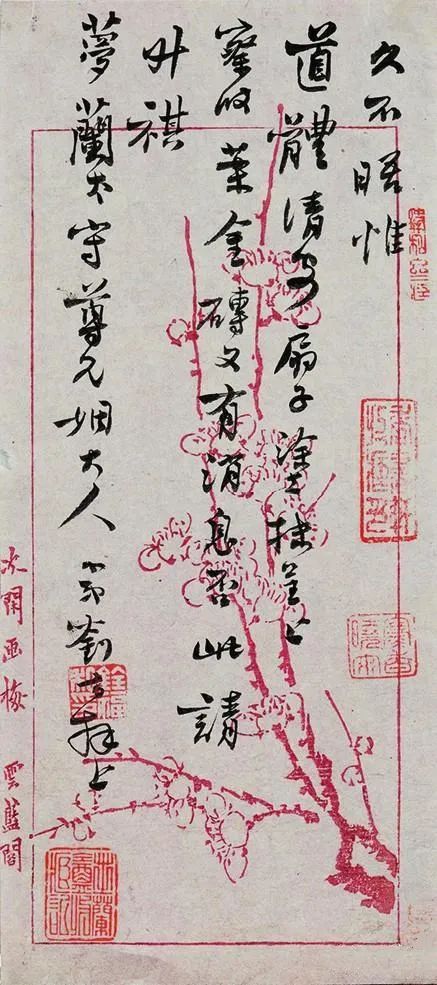 久不晤惟
道體清安扇子塗抹呈上
察收葉金磚又有消息否此請
升祺
夢蘭太守尊兄姻大人 弟劉拜上
次閑画梅 雲藍閣